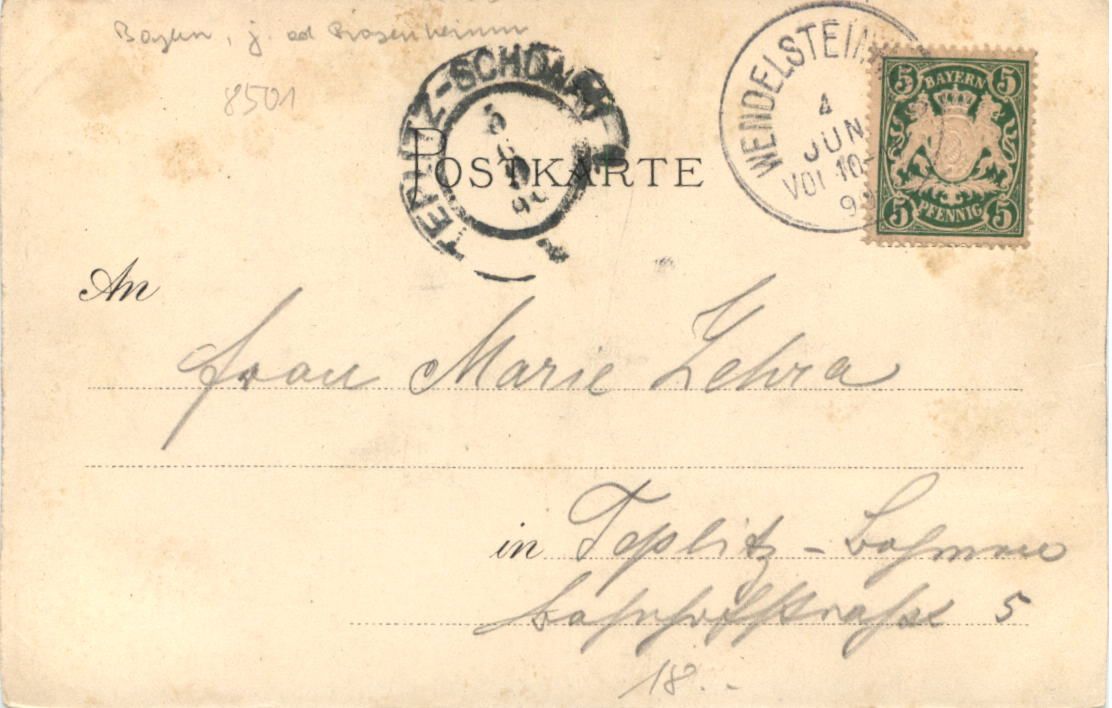 Bayern, j. od Rosenheimu
8501
TEPLITZ-SCHÖNAU
WENDELSTEIN
4
JUN.
VOR 10-
9
5 BAYERN 5
5 PFENNIG 5
POSTKARTE
An
Frau Marie Zehra
in Teplitz - Böhmen
Bahnhofstraße 5
18..